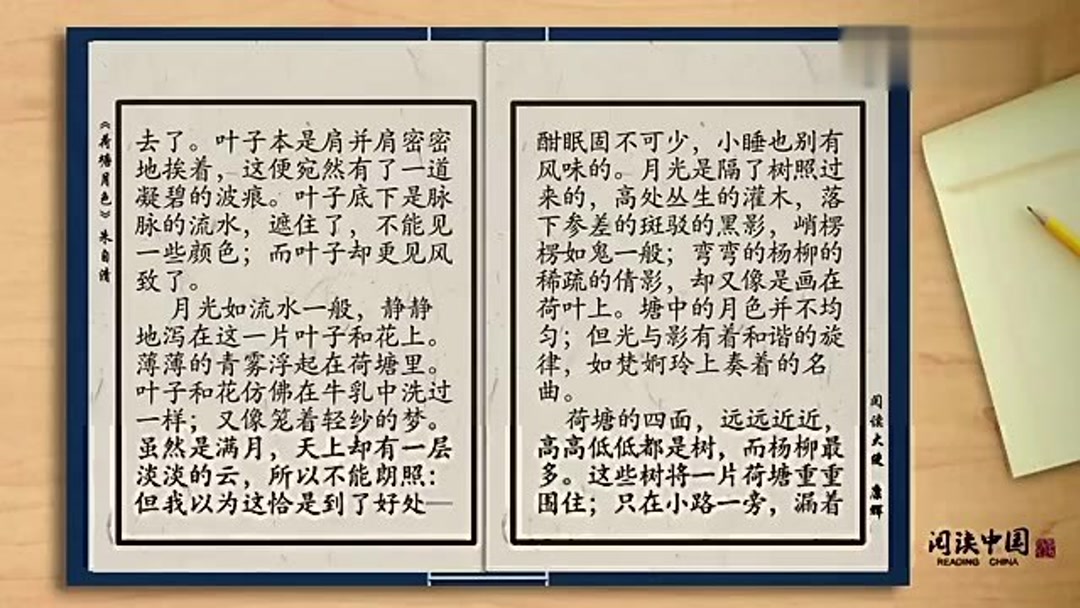 《荷塘月色》朱自清
去了。叶子本是肩并肩密密
地挨着，这便宛然有了一道
凝碧的波痕。叶子底下是脉
脉的流水，遮住了，不能见
一些颜色；而叶子却更见风
致了。
月光如流水一般，静静
地泻在这一片叶子和花上。
薄薄的青雾浮起在荷塘里。
叶子和花仿佛在牛乳中洗过
一样；又像笼着轻纱的梦。
虽然是满月，天上却有一层
淡淡的云，所以不能朗照：
但我以为这恰是到了好处—
酣眠固不可少，小睡也别有
风味的。月光是隔了树照过
来的，高处丛生的灌木，落
下参差的斑驳的黑影，峭楞
楞如鬼一般；弯弯的杨柳的
稀疏的倩影，却又像是画在
荷叶上。塘中的月色并不均
匀；但光与影有着和谐的旋
律，如梵婀玲上奏着的名
曲。
荷塘的四面，远远近近，
高高低低都是树，而杨柳最
多。这些树将一片荷塘重重
围住；只在小路一旁，漏着
阅读大使 康辉
阅读中国
READING CHINA